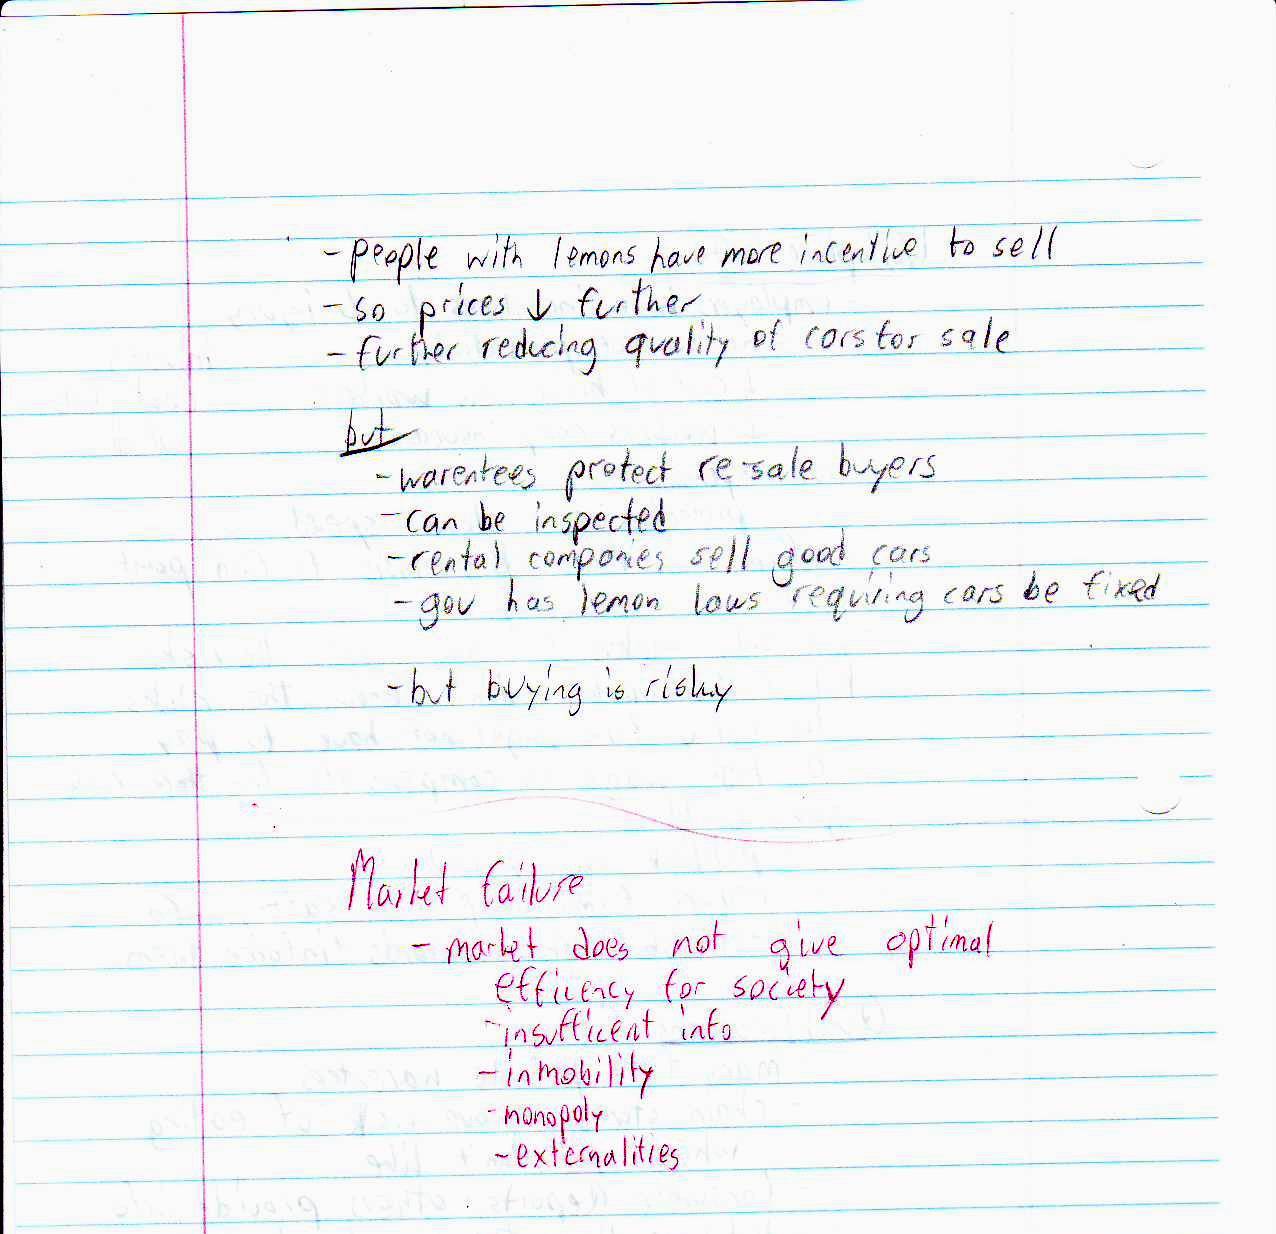 - people with lemons have more incentive to sell
- so prices ↓ further
- further reducing quality of cars for sale
but
- warentees protect re-sale buyers
- can be inspected
- rental companies sell good cars
- gov has lemon laws requiring cars be fixed
- but buying is risky
Market failure
- market does not give optimal
efficency for society
- insufficent info
- inmobility
- monopoly
- externalities